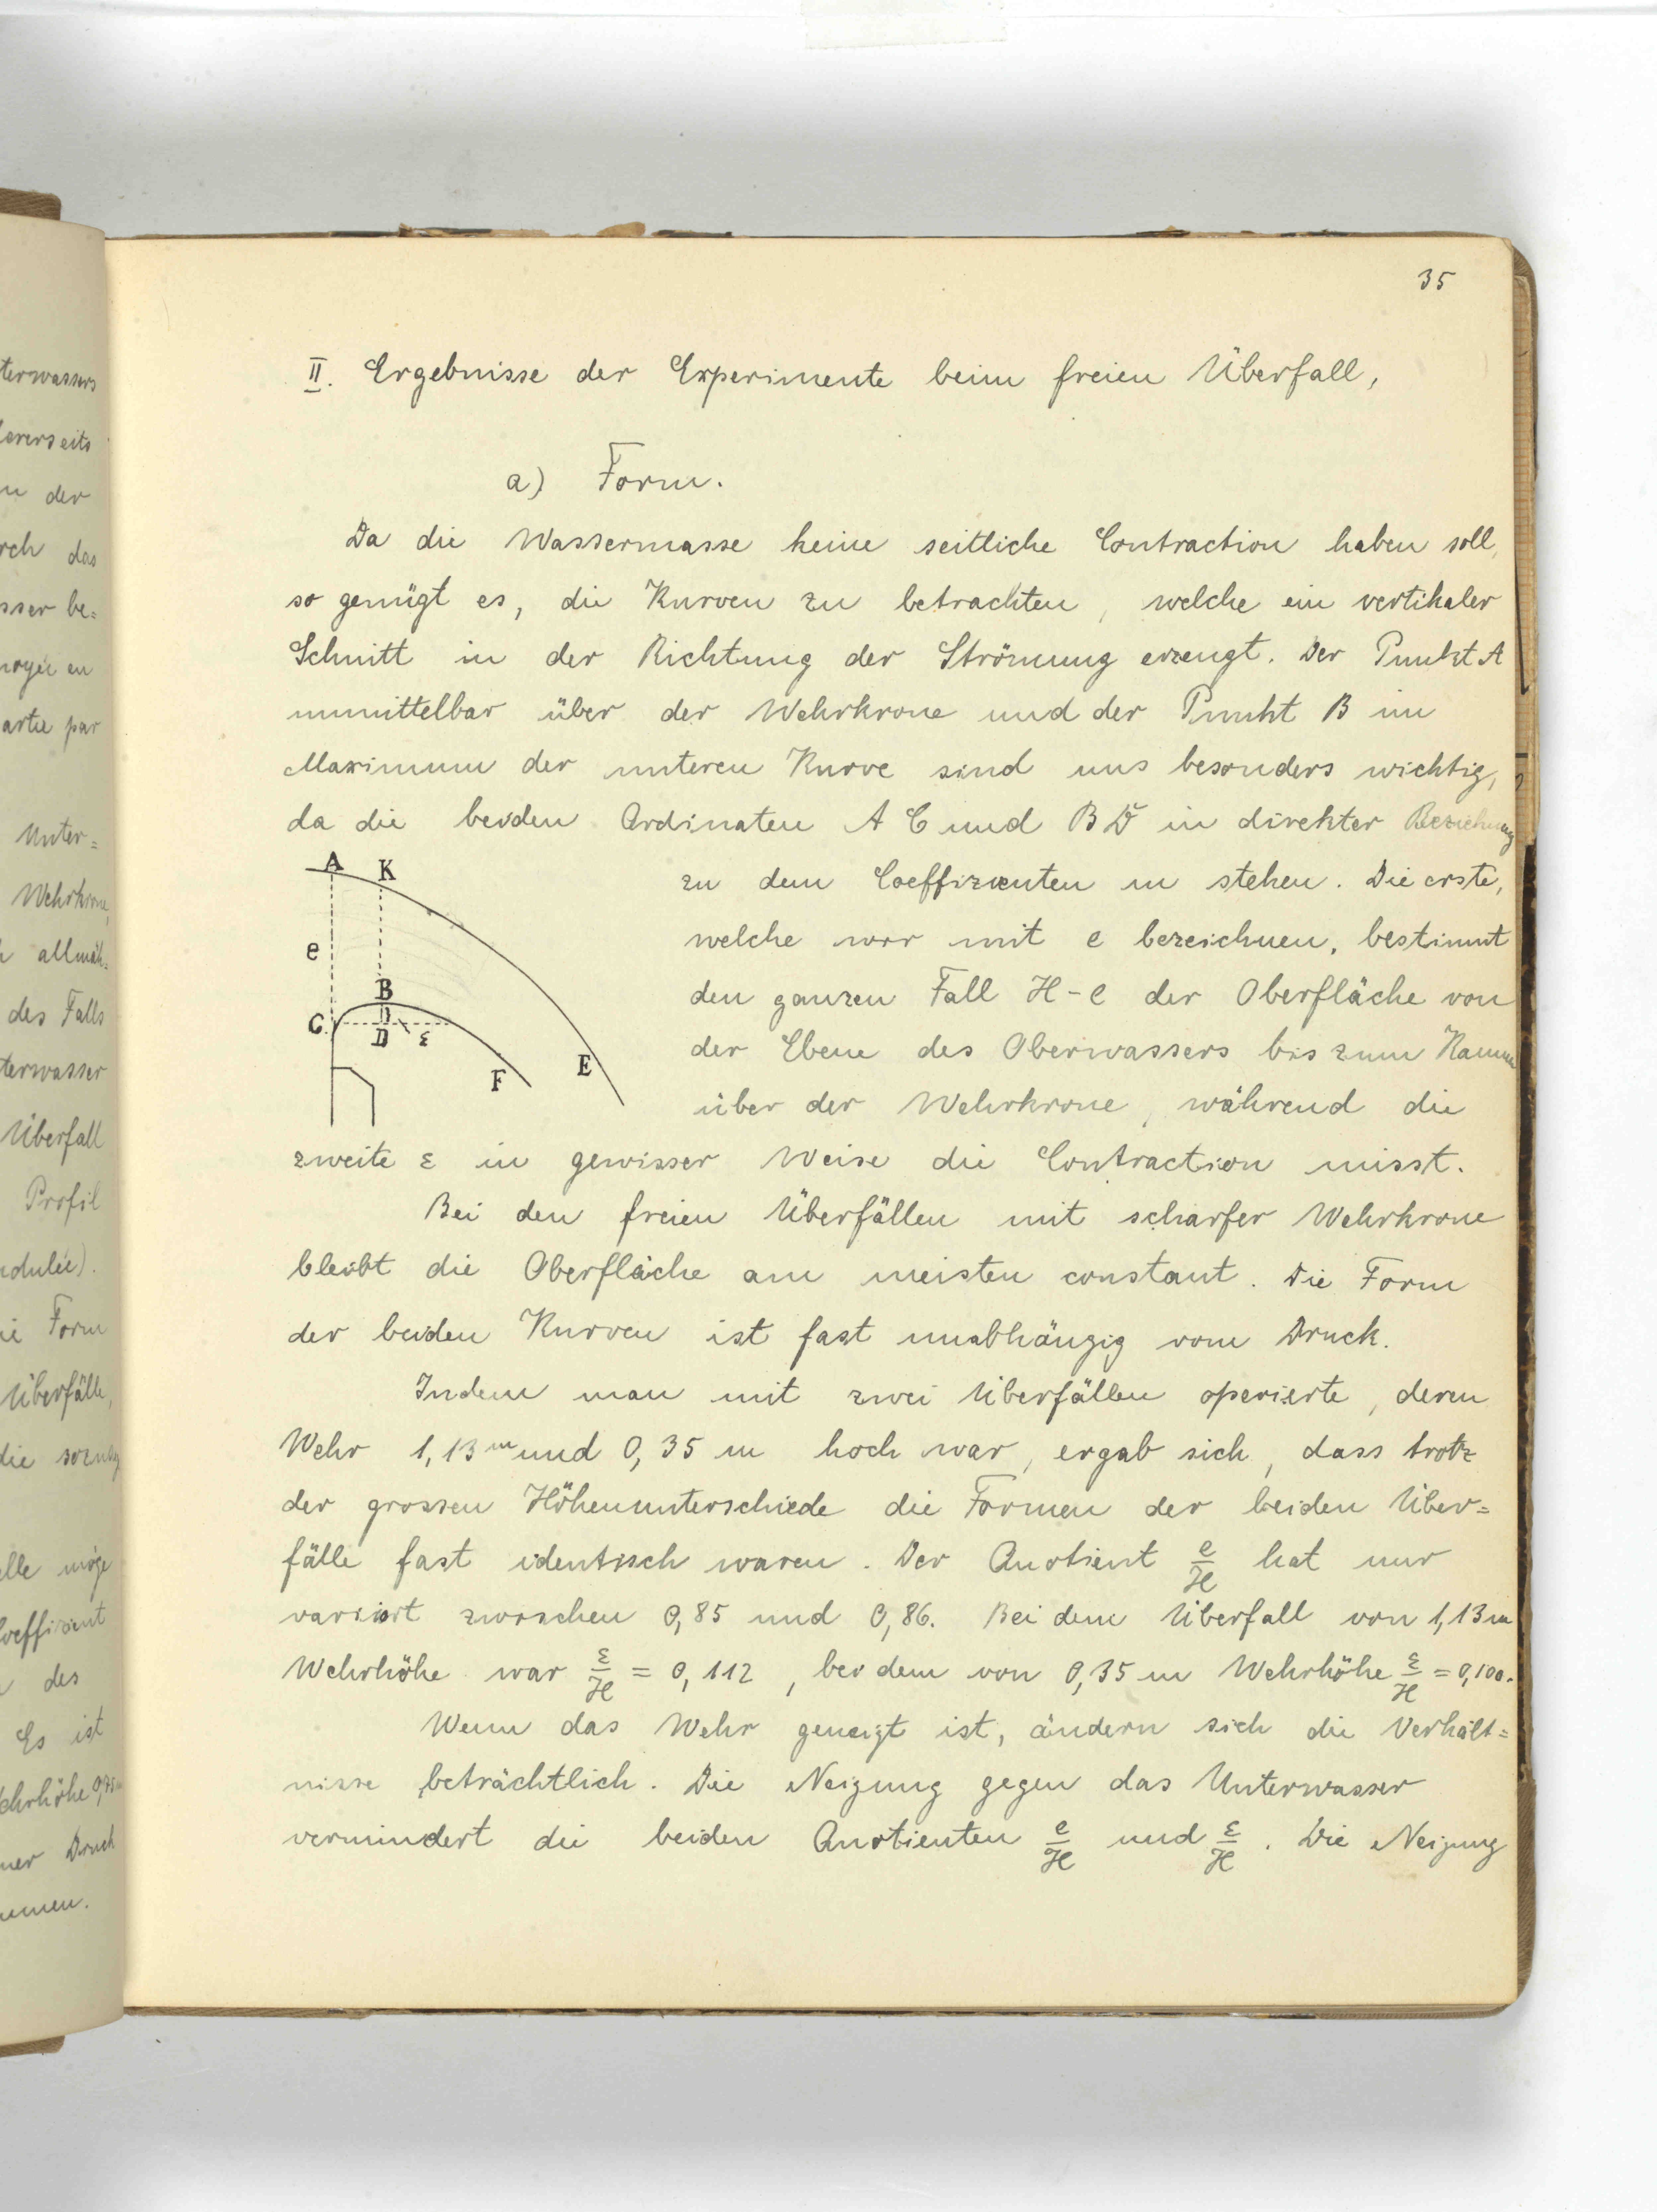 terwassers
erseits
der
rch das
sser be=
artie par
Unter=
Wehrkrone,
allmäh=
des Falls
terwasser
Überfall
Profil
ndulée).
Form
Überfälle,
lle möge
oeffizient
des
Es ist
ehrhöhe
ner Druck
mmen.
35
II. Ergebnisse der Experimente beim freien Überfall,
a) Form.
Da die Wassermasse keine seitliche Contraction haben soll,
so genügt es, die Kurven zu betrachten, welche ein vertikaler
Schnitt in der Richtung der Strömung erzeugt. Der Punkt A
unmittelbar über der Wehrkrone und der Punkt B im
Maximum der unteren Kurve sind uns besonders wichtig,
da die beiden Ordinaten A C und B D in direkter Beziehung
zu dem Coeffizienten m stehen. Die erste,
welche wir mit e bezeichnen, bestimmt
den ganzen Fall H-e der Oberfläche von
der Ebene des Oberwassers bis zum
über der Wehrkrone, während die
A K
e
B
C D ε
F E
zweite ε in gewisser Weise die Contraction misst.
Bei den freien Überfällen mit scharfer Wehrkrone
bleibt die Oberfläche am meisten constant. Die Form
der beiden Kurven ist fast unabhängig vom Druck.
Indem man mit zwei Überfällen operierte, deren
Wehr 1,13 m und 0,35 m hoch war, ergab sich, dass trotz
der grossen Höhenunterschiede die Formen der beiden Über=
fälle fast identisch waren. Der Quotient e/H hat nur
variiert zwischen 0,85 und 0,86. Bei dem Überfall von 1,13 m
Wehrhöhe war ε/H = 0,112, bei dem von 0,35 m Wehrhöhe ε/H = 0,100.
Wenn das Wehr geneigt ist, ändern sich die Verhält=
nisse beträchtlich. Die Neigung gegen das Unterwasser
vermindert die beiden Quotienten e/H und ε/H. Die Neigung